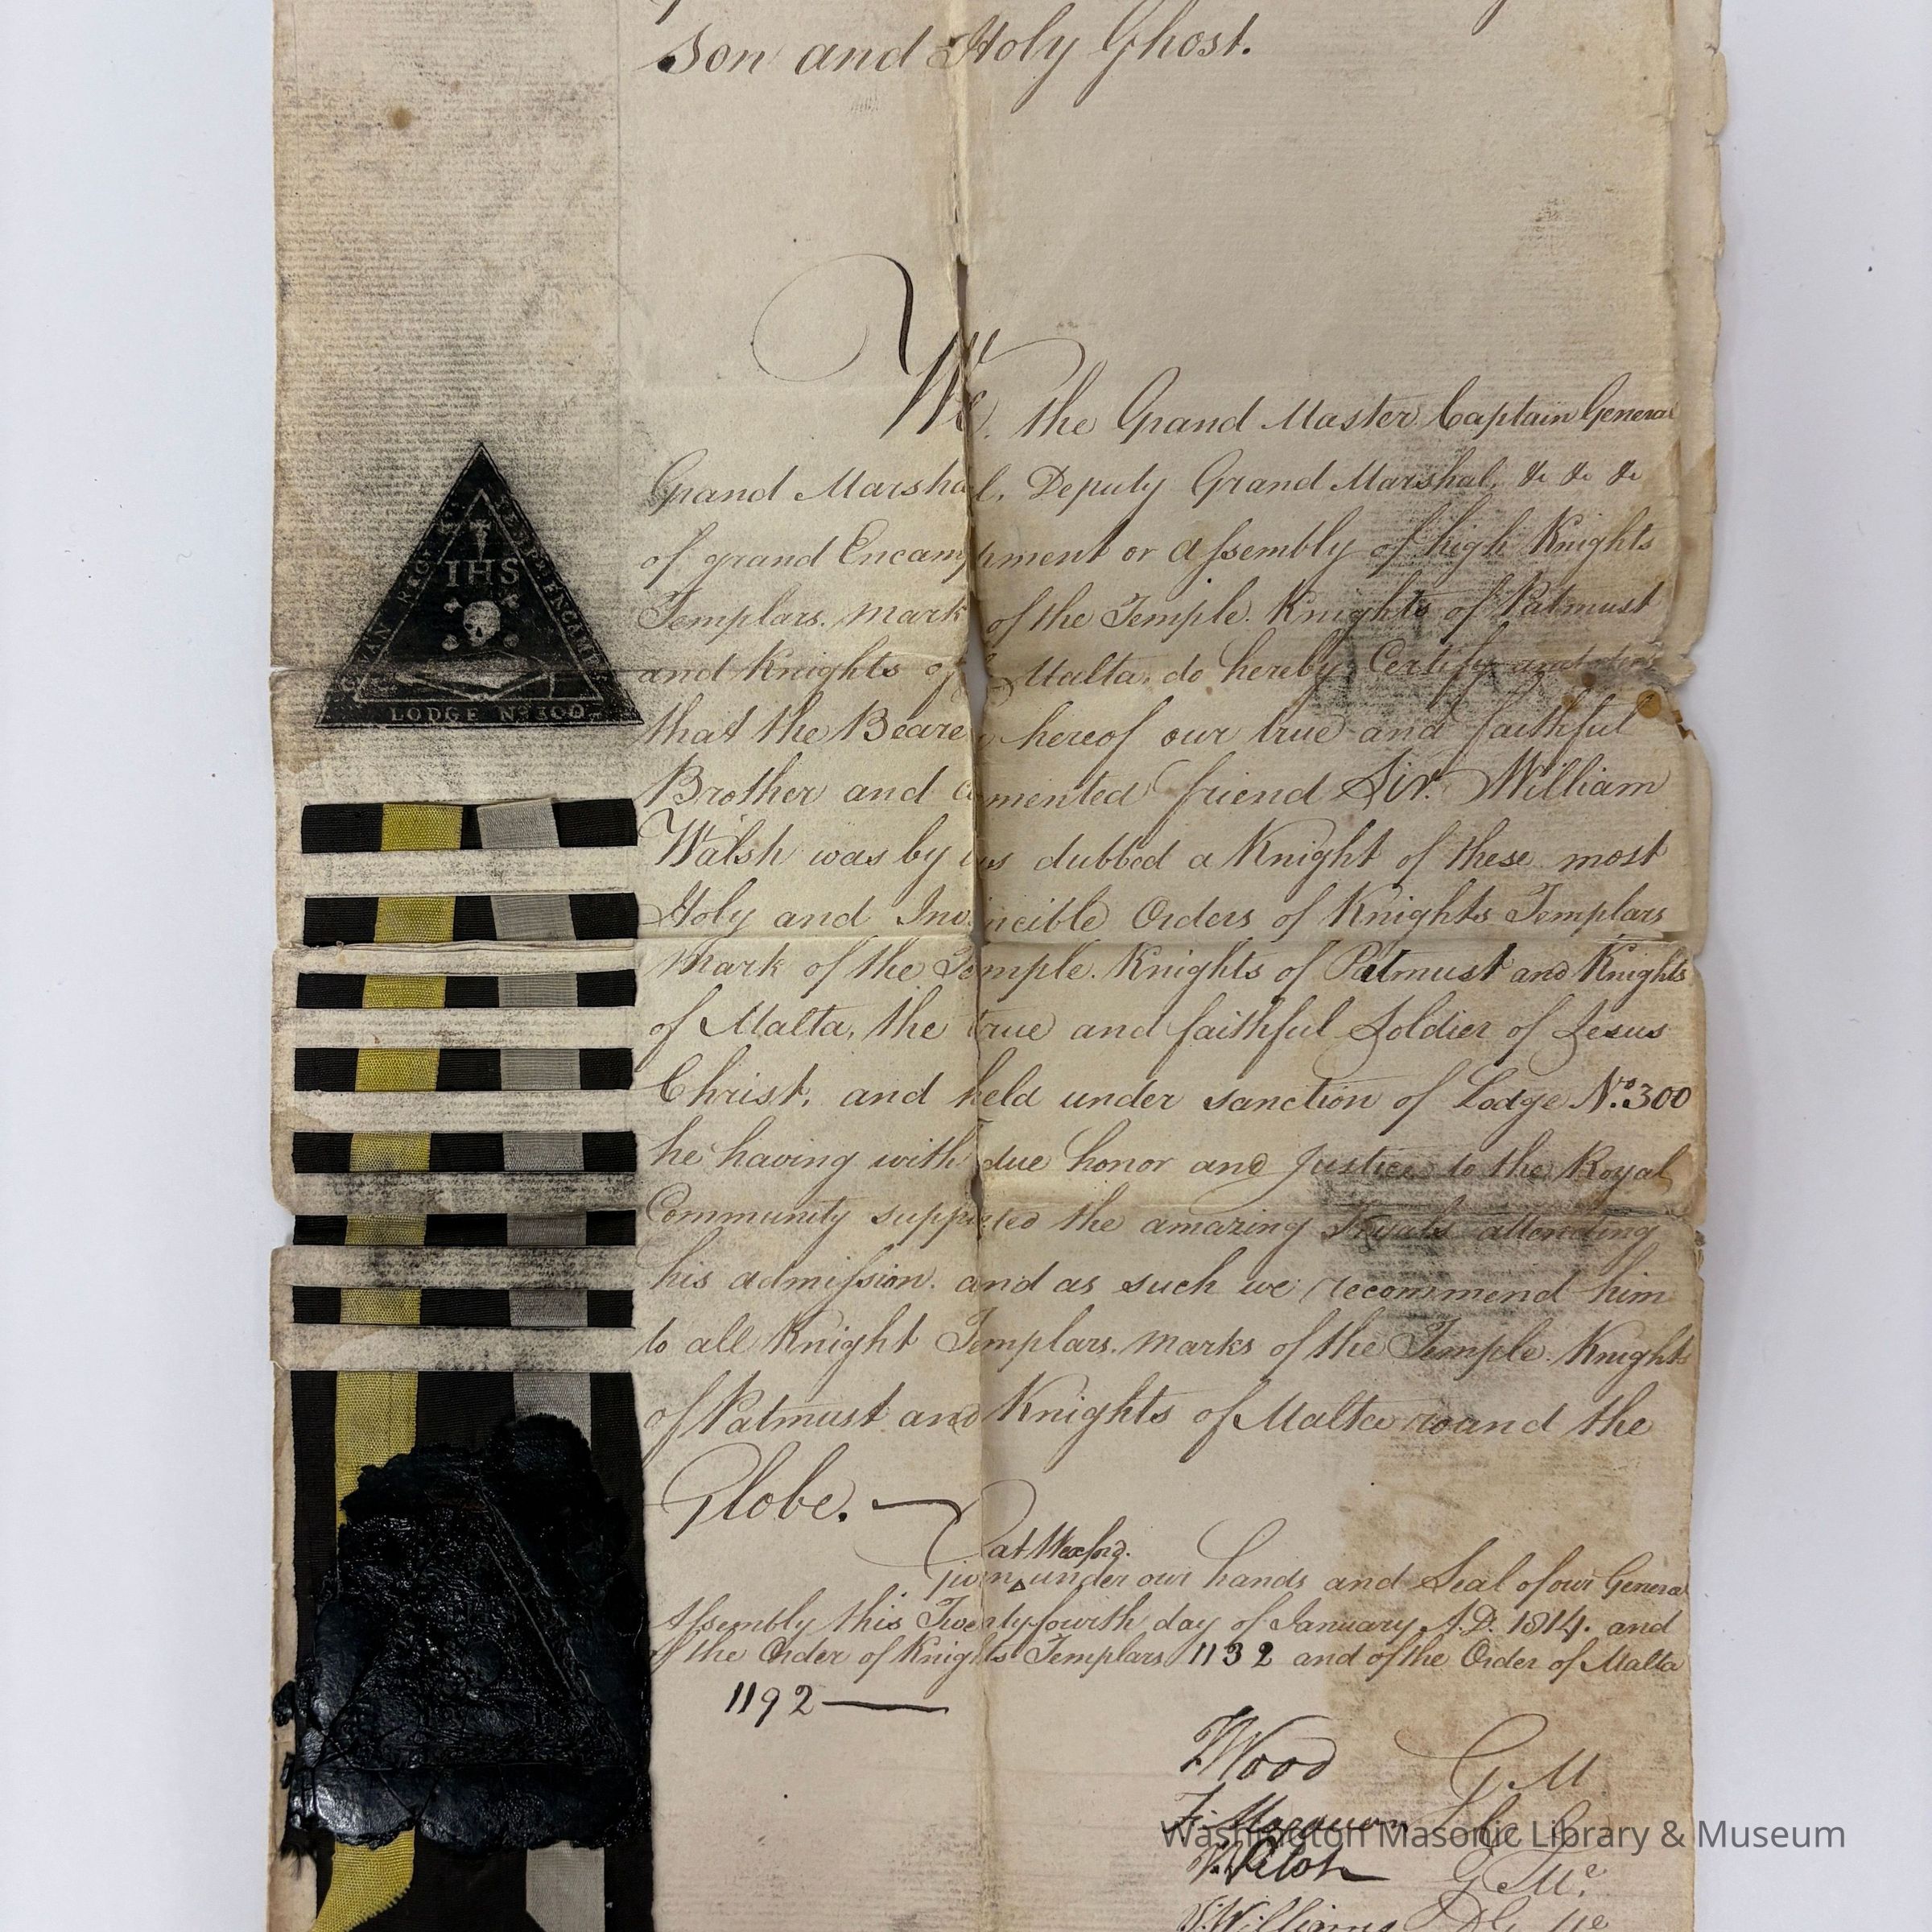 Son and Holy Ghost.
We, the Grand Master Captain General
Grand Marshal, Deputy Grand Marshal, &c &c &c
of grand Encampment or Assembly of high Knights
Templars. Mark of the Temple. Knights of Patmust
and Knights of Malta, do hereby Certify and
that the Bearer hereof our true and faithful
Brother and friend Sir William
Walsh was by us dubbed a Knight of these most
Holy and Invincible Orders of Knights Templars
Mark of the Temple. Knights of Patmust and Knights
of Malta, the true and faithful Soldier of Jesus
Christ, and held under sanction of Lodge No. 300
he having with due honor and Justice to the Royal
Community supported the amazing Tryals attending
his admission. and as such we recommend him
to all Knight Templars. Marks of the Temple. Knights
of Patmust and Knights of Malta round the
Globe.
at Wexford.
Given under our hands and Seal of our General
Assembly this Twenty fourth day of January A.D. 1814. and
of the Order of Knights Templars 1132 and of the Order of Malta
1192
Wood G. M
G. Me.
Williams
IHS
LODGE No 300
Washington Masonic Library & Museum